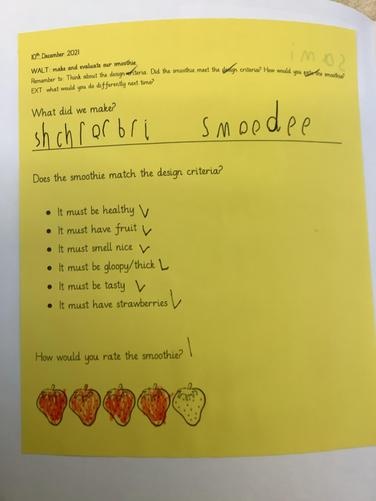 10th December 2021
WALT: make and evaluate our smoothie.
Remember to: Think about the design criteria. Did the smoothie meet the design criteria? How would you rate the smoothie?
EXT: what would you do differently next time?
What did we make?
shchrorbri smoedee
Does the smoothie match the design criteria?
• It must be healthy ✓
• It must have fruit ✓
• It must smell nice ✓
• It must be gloopy/thick ✓
• It must be tasty ✓
• It must have strawberries ✓
How would you rate the smoothie?